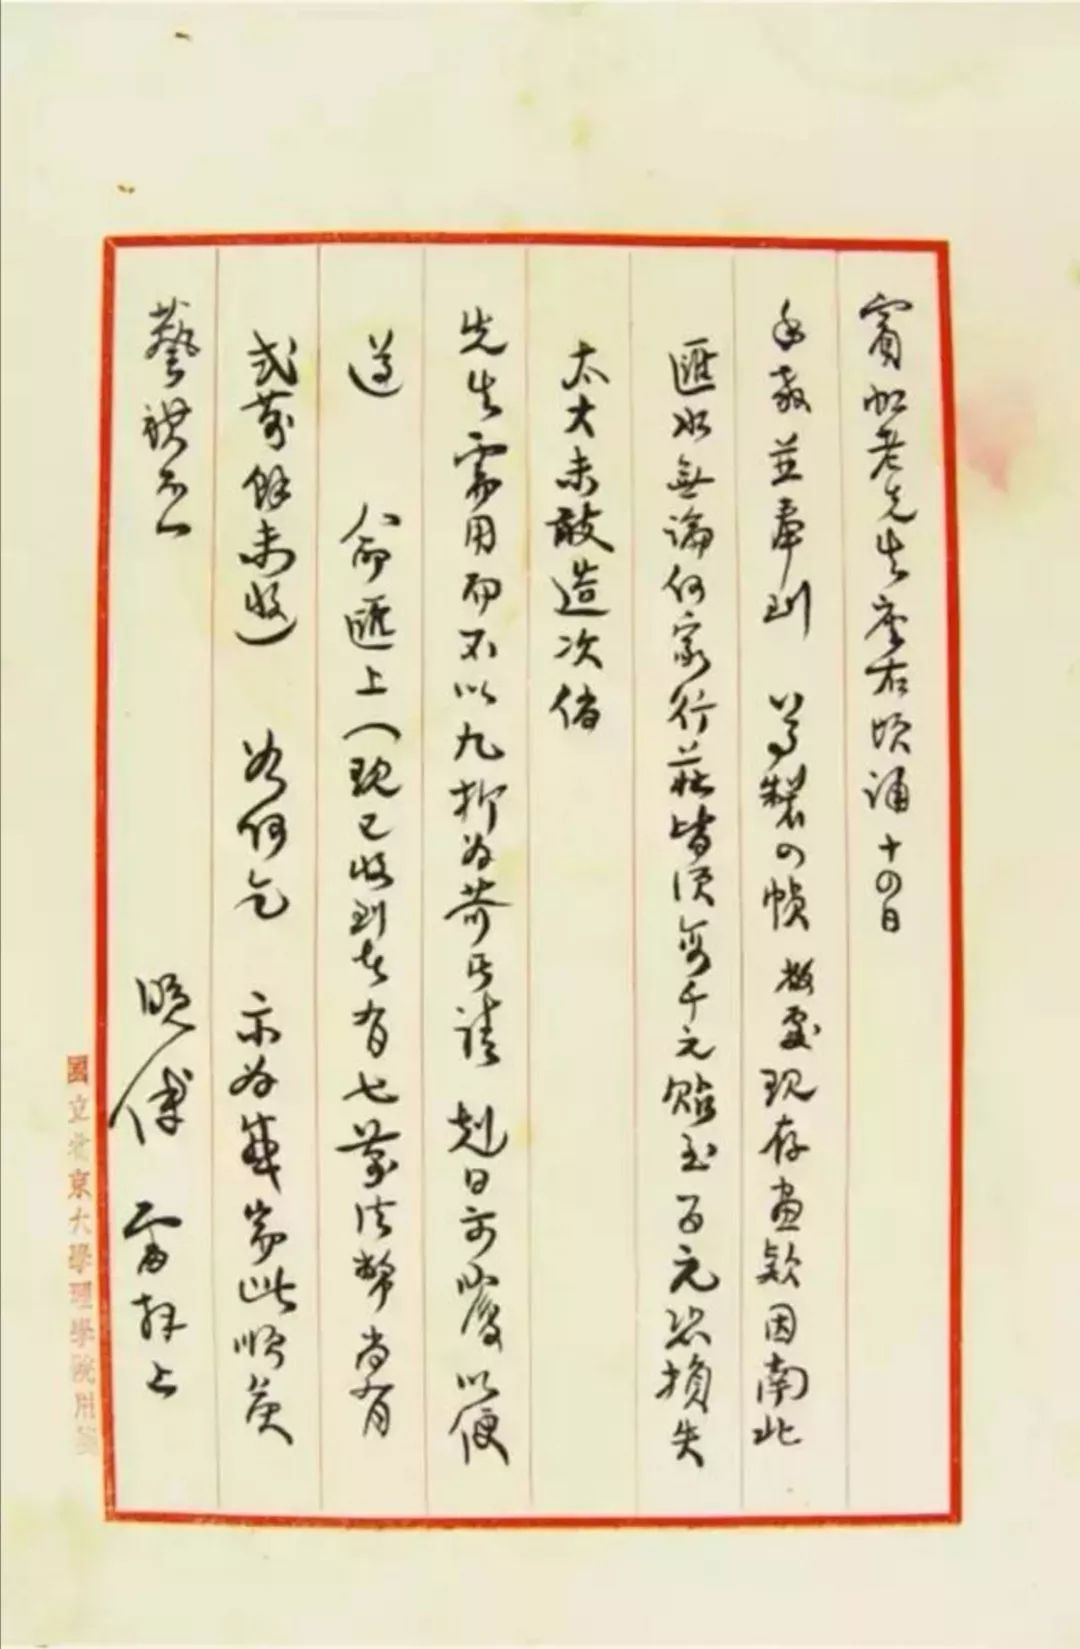 賓虹老先生座右頃誦十四日
手教並奉到 尊製四幀敝處現存畫款因南北
匯水無論何家行莊皆須每千元貼五百元恐損失
太大未敢造次倘
先生需用而不以九折為荷請 剋日示覆以便
遵 命匯上(現已收到者有七萬法幣尚有
弍萬餘未收) 如何乞 示為感耑此順頌
藝祺不一 晚傅雷拜上
國立北京大學理學院用箋